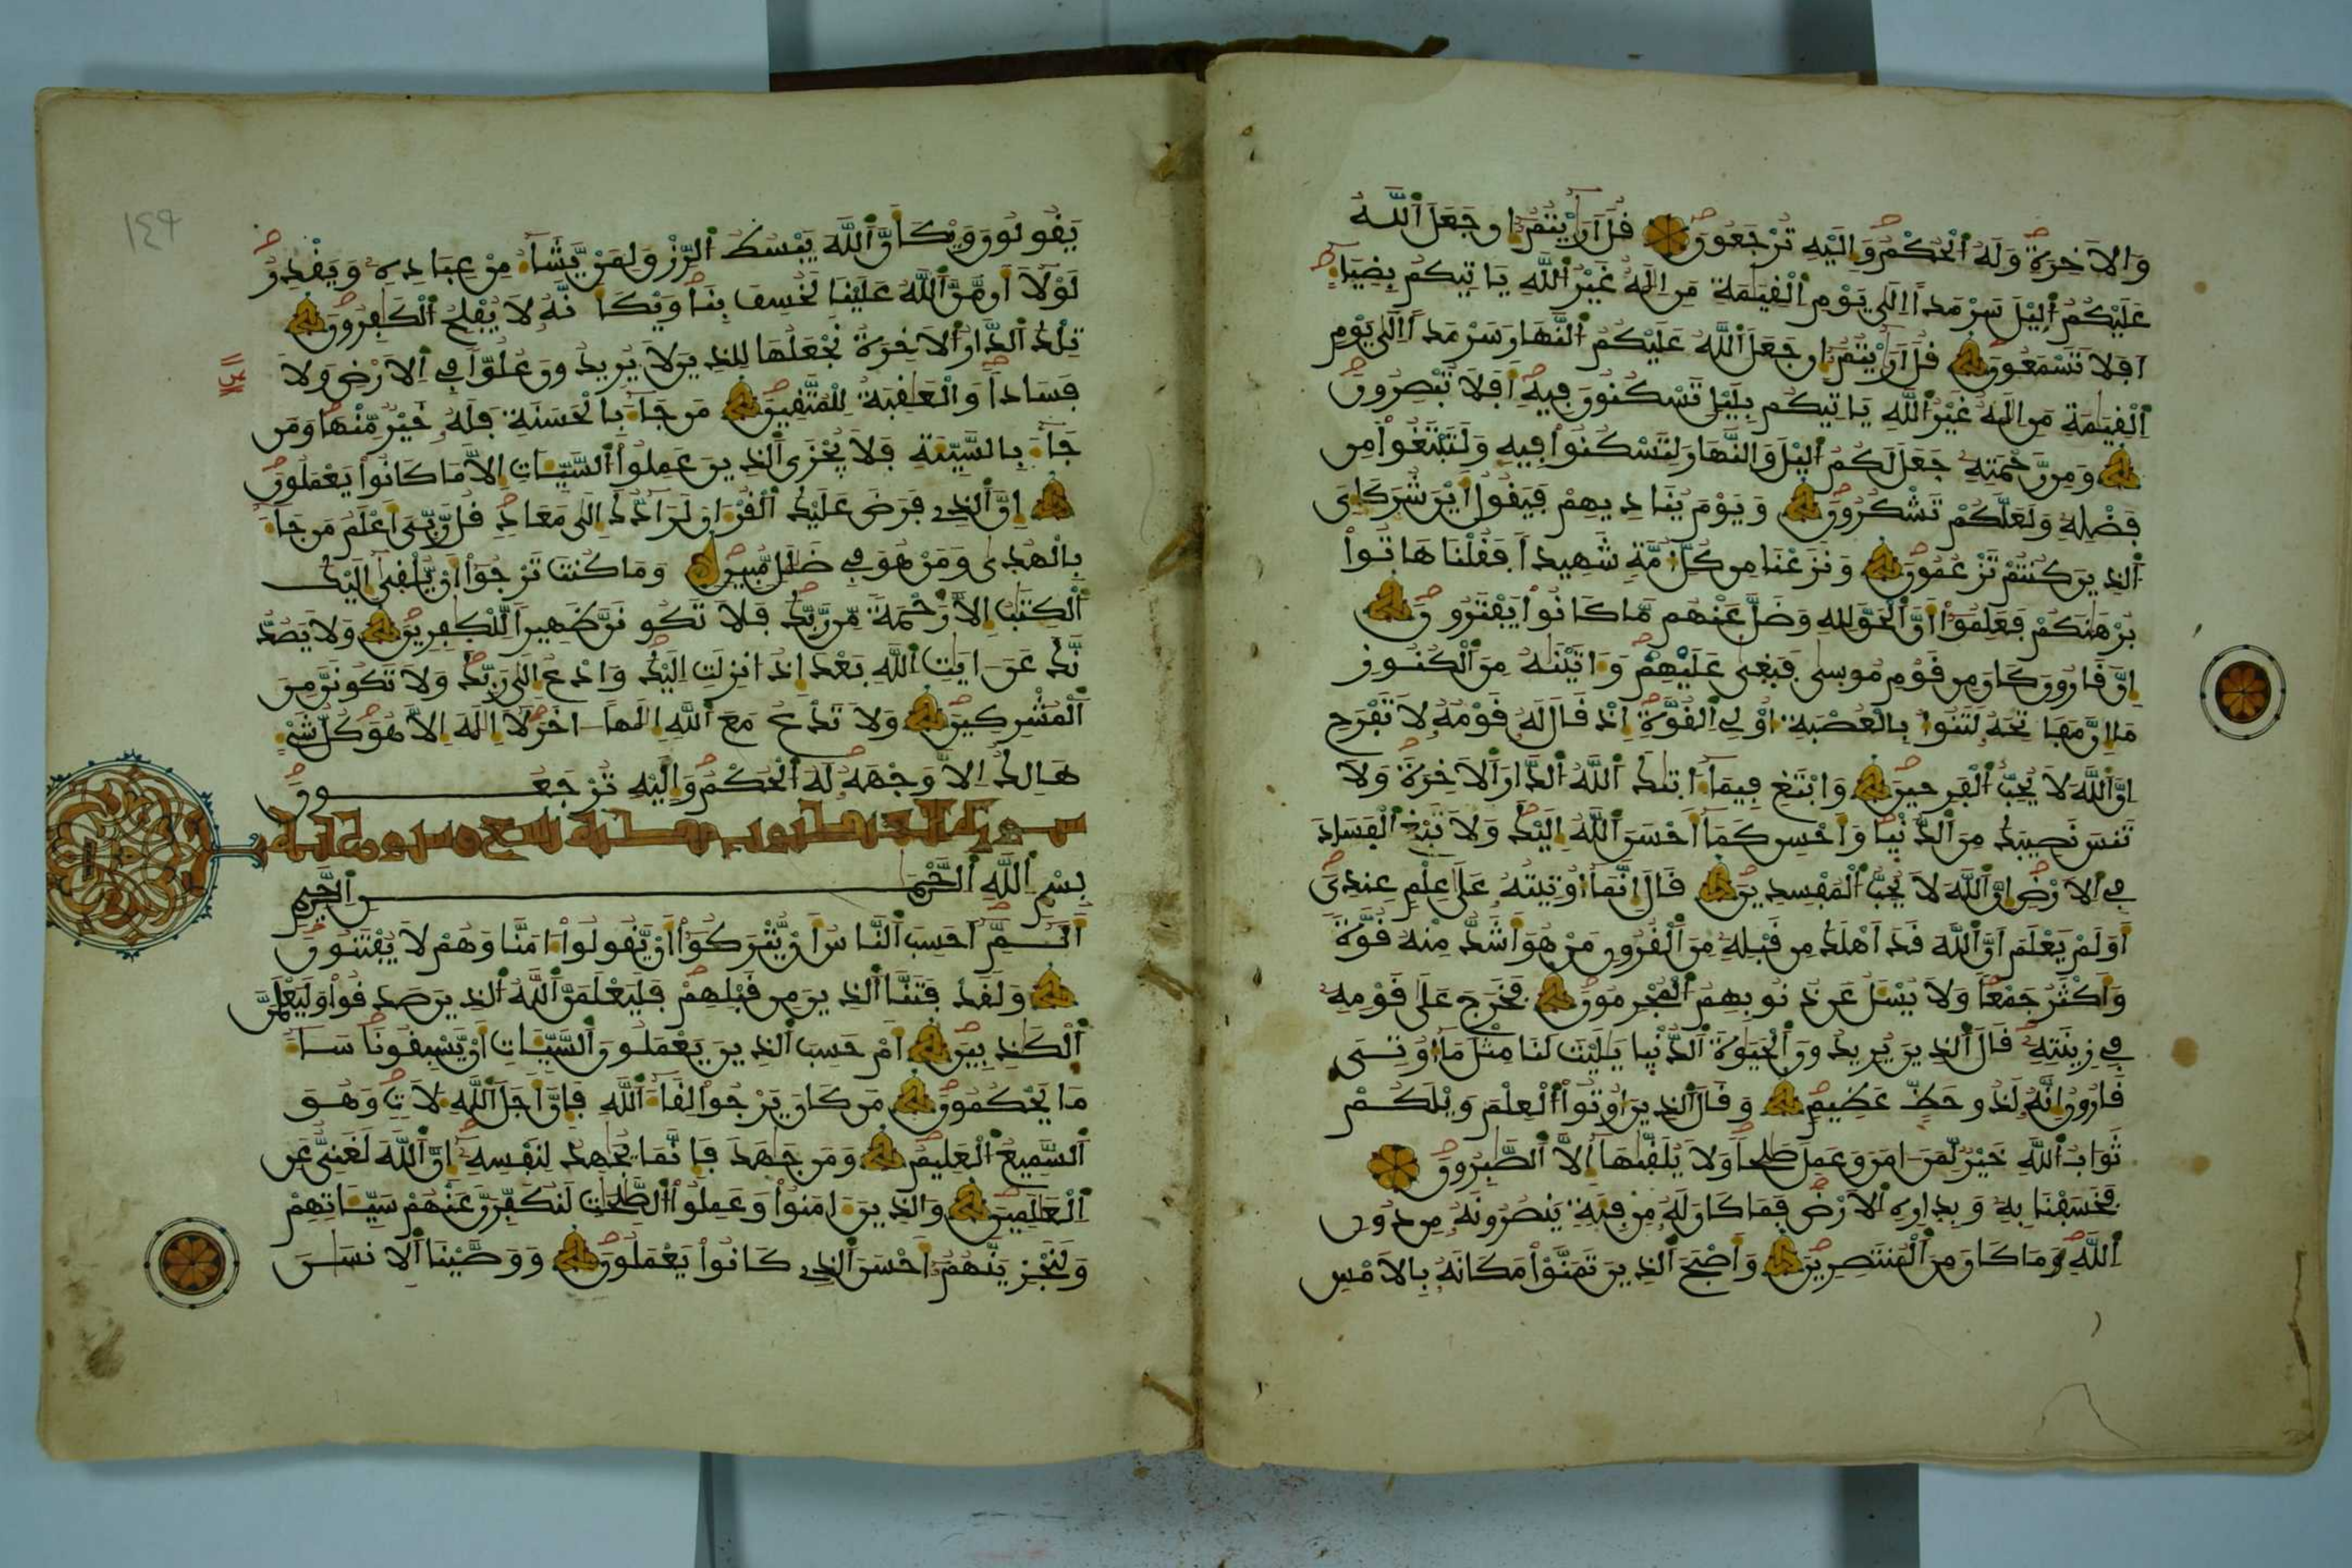 وَالَاخِرَةِ وَلَهُ اٰلْحُكْمُ وَإِلَيْهِ تُرْجَعُونَ قُلَ اَرَٰيْتُمُ إِن جَعَلَ اَللَّهُ
عَلَيْكُمُ اُلَّيْلَ سَرْمَدًا اِلَىٰ يَوْمِ اِلْقِيَٰمَةِ مَنِ اِلَٰهٌ غَيْرُ اُللَّهِ يَاتِيكُم بِضِيَآءٍ
اَفَلَا تَسْمَعُونَ قُلَ اَرَٰيْتُمُ إِن جَعَلَ اَللَّهُ عَلَيْكُمُ اُلنَّهَارَ سَرْمَدًا اِلَىٰ يَوْمِ
اِلْقِيَٰمَةِ مَنِ اِلَٰهٌ غَيْرُ اُللَّهِ يَاتِيكُم بِلَيْلٍ تَسْكُنُونَ فِيهِ أَفَلَا تُبْصِرُونَ
وَمِن رَّحْمَتِهِ جَعَلَ لَكُمُ اُلَّيْلَ وَالنَّهَارَ لِتَسْكُنُواْ فِيهِ وَلِتَبْتَغُواْ مِن
فَضْلِهِ وَلَعَلَّكُمْ تَشْكُرُونَ وَيَوْمَ يُنَادِيهِمْ فَيَقُولُ أَيْنَ شُرَكَآءِيَ
اَلذِينَ كُنتُمْ تَزْعُمُونَ وَنَزَعْنَا مِن كُلِّ أُمَّةٍ شَهِيدًا فَقُلْنَا هَاتُواْ
بُرْهَٰنَكُمْ فَعَلِمُوٓاْ أَنَّ اَلْحَقَّ لِلهِ وَضَلَّ عَنْهُم مَّا كَانُواْ يَفْتَرُونَ
اِنَّ قَارُونَ كَانَ مِن قَوْمِ مُوسَىٰ فَبَغَىٰ عَلَيْهِمْ وَءَاتَيْنَٰهُ مِنَ اَلْكُنُوزِ
مَآ إِنَّ مَفَاتِحَهُ لَتَنُوٓأُ بِالْعُصْبَةِ أُوْلِي اِلْقُوَّةِ إِذْ قَالَ لَهُ قَوْمُهُ لَا تَفْرَحِ
اِنَّ اَللَّهَ لَا يُحِبُّ اُلْفَرِحِينَ وَابْتَغِ فِيمَآ ءَاتَىٰكَ اَللَّهُ اُلدَّارَ اَلَاخِرَةَ وَلَا
تَنسَ نَصِيبَكَ مِنَ اَلدُّنْيَا وَأَحْسِن كَمَآ أَحْسَنَ اَللَّهُ إِلَيْكَ وَلَا تَبْغِ اِلْفَسَادَ
فِي اِلَارْضِ إِنَّ اَللَّهَ لَا يُحِبُّ اُلْمُفْسِدِينَ قَالَ إِنَّمَآ أُوتِيتُهُ عَلَىٰ عِلْمٍ عِندِيَ
أَوَلَمْ يَعْلَمَ اَنَّ اَللَّهَ قَدَ اَهْلَكَ مِن قَبْلِهِ مِنَ اَلْقُرُونِ مَنْ هُوَ أَشَدُّ مِنْهُ قُوَّةً
وَأَكْثَرُ جَمْعًا وَلَا يُسْـَٔلُ عَن ذُنُوبِهِمُ اُلْمُجْرِمُونَ فَخَرَجَ عَلَىٰ قَوْمِهِ
فِي زِينَتِهِ قَالَ اَلذِينَ يُرِيدُونَ اَلْحَيَوٰةَ اَلدُّنْيَا يَٰلَيْتَ لَنَا مِثْلَ مَآ أُوتِيَ
قَارُونُ إِنَّهُ لَذُو حَظٍّ عَظِيمٍ وَقَالَ اَلذِينَ أُوتُواْ اُلْعِلْمَ وَيْلَكُمْ
ثَوَابُ اُللَّهِ خَيْرٌ لِّمَنَ اٰمَنَ وَعَمِلَ صَٰلِحًا وَلَا يُلَقَّىٰهَآ إِلَّا اَلصَّٰبِرُونَ
فَخَسَفْنَا بِهِ وَبِدَارِهِ اِلَارْضَ فَمَا كَانَ لَهُ مِن فِئَةٍ يَنصُرُونَهُ مِن دُونِ
اِللَّهِ وَمَا كَانَ مِنَ اَلْمُنتَصِرِينَ وَأَصْبَحَ اَلذِينَ تَمَنَّوْاْ مَكَانَهُ بِالَامْسِ
١٤٩
يَقُولُونَ وَيْكَأَنَّ اَللَّهَ يَبْسُطُ اُلرِّزْقَ لِمَنْ يَّشَآءُ مِنْ عِبَادِهِ وَيَقْدِرُ
لَوْلَآ أَن مَّنَّ اَللَّهُ عَلَيْنَا لَخُسِفَ بِنَا وَيْكَأَنَّهُ لَا يُفْلِحُ اُلْكَٰفِرُونَ
تِلْكَ اَلدَّارُ اُلَاخِرَةُ نَجْعَلُهَا لِلذِينَ لَا يُرِيدُونَ عُلُوًّا فِي اِلَارْضِ وَلَا
فَسَادًا وَالْعَٰقِبَةُ لِلْمُتَّقِينَ مَن جَآءَ بِالْحَسَنَةِ فَلَهُ خَيْرٌ مِّنْهَا وَمَن
جَآءَ بِالسَّيِّئَةِ فَلَا يُجْزَى اَلذِينَ عَمِلُواْ اُلسَّيِّـَٔاتِ إِلَّا مَا كَانُواْ يَعْمَلُونَ
إِنَّ اَلذِي فَرَضَ عَلَيْكَ اَلْقُرْءَانَ لَرَآدُّكَ إِلَىٰ مَعَادٍ قُل رَّبِّيَ أَعْلَمُ مَن جَآءَ
بِالْهُدَىٰ وَمَنْ هُوَ فِي ضَلَٰلٍ مُّبِينٍ وَمَا كُنتَ تَرْجُوٓاْ أَنْ يُّلْقَىٰٓ إِلَيْكَ
اَلْكِتَٰبُ إِلَّا رَحْمَةً مِّن رَّبِّكَ فَلَا تَكُونَنَّ ظَهِيرًا لِّلْكٰفِرِينَ وَلَا يَصُدُّ
نَّكَ عَنَ اٰيَٰتِ اِللَّهِ بَعْدَ إِذُ انزِلَتِ اِلَيْكَ وَادْعُ إِلَىٰ رَبِّكَ وَلَا تَكُونَنَّ مِنَ
اَلْمُشْرِكِينَ وَلَا تَدْعُ مَعَ اَللَّهِ إِلَٰهًا اٰخَرَ لَآ إِلَٰهَ إِلَّا هُوَ كُلُّ شَيْءٍ
هَالِكٌ اِلَّا وَجْهَهُ لَهُ اُلْحُكْمُ وَإِلَيْهِ تُرْجَعُونَ
بِسْمِ اِللَّهِ اِلرَّحْمَٰنِ اِلرَّحِيمِ
أَلَمِّٓ أَحَسِبَ اَلنَّاسُ أَنْ يُّتْرَكُوٓاْ أَنْ يَّقُولُوٓاْ ءَامَنَّا وَهُمْ لَا يُفْتَنُونَ
وَلَقَدْ فَتَنَّا اَلذِينَ مِن قَبْلِهِمْ فَلَيَعْلَمَنَّ اَللَّهُ اُلذِينَ صَدَقُواْ وَلَيَعْلَمَنَّ
اَلْكَٰذِبِينَ أَمْ حَسِبَ اَلذِينَ يَعْمَلُونَ اَلسَّيِّـَٔاتِ أَنْ يَّسْبِقُونَا سَآءَ
مَا يَحْكُمُونَ مَن كَانَ يَرْجُواْ لِقَآءَ اَللَّهِ فَإِنَّ أَجَلَ اَللَّهِ لَأٓتٍ وَهُوَ
اَلسَّمِيعُ اُلْعَلِيمُ وَمَن جَٰهَدَ فَإِنَّمَا يُجَٰهِدُ لِنَفْسِهِ إِنَّ اَللَّهَ لَغَنِيٌّ عَنِ
اِلْعَٰلَمِينَ وَالذِينَ ءَامَنُواْ وَعَمِلُواْ اُلصَّٰلِحَٰتِ لَنُكَفِّرَنَّ عَنْهُمْ سَيِّـَٔاتِهِمْ
وَلَنَجْزِيَنَّهُمُ أَحْسَنَ اَلذِي كَانُواْ يَعْمَلُونَ وَوَصَّيْنَا اَلِانسَٰنَ